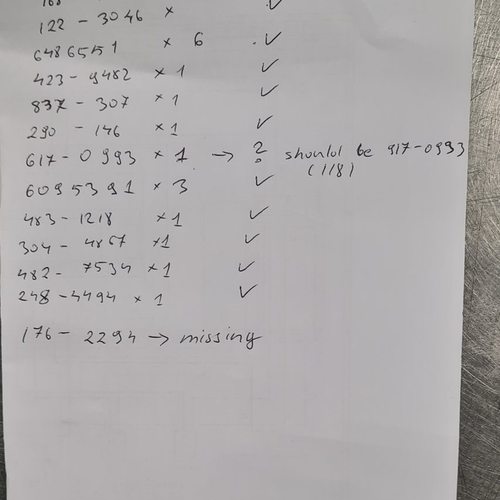 122 - 3046 x ✓
6486551 x 6 ✓
423 - 9482 x 1 ✓
837 - 307 x 1 ✓
290 - 146 x 1 ✓
617 - 0993 x 1 → ? should be 917-0993
(118)
6095391 x 3 ✓
483 - 1218 x 1 ✓
304 - 4867 x1 ✓
482 - 7534 x 1 ✓
248 - 4494 x 1 ✓
176 - 2294 → missing